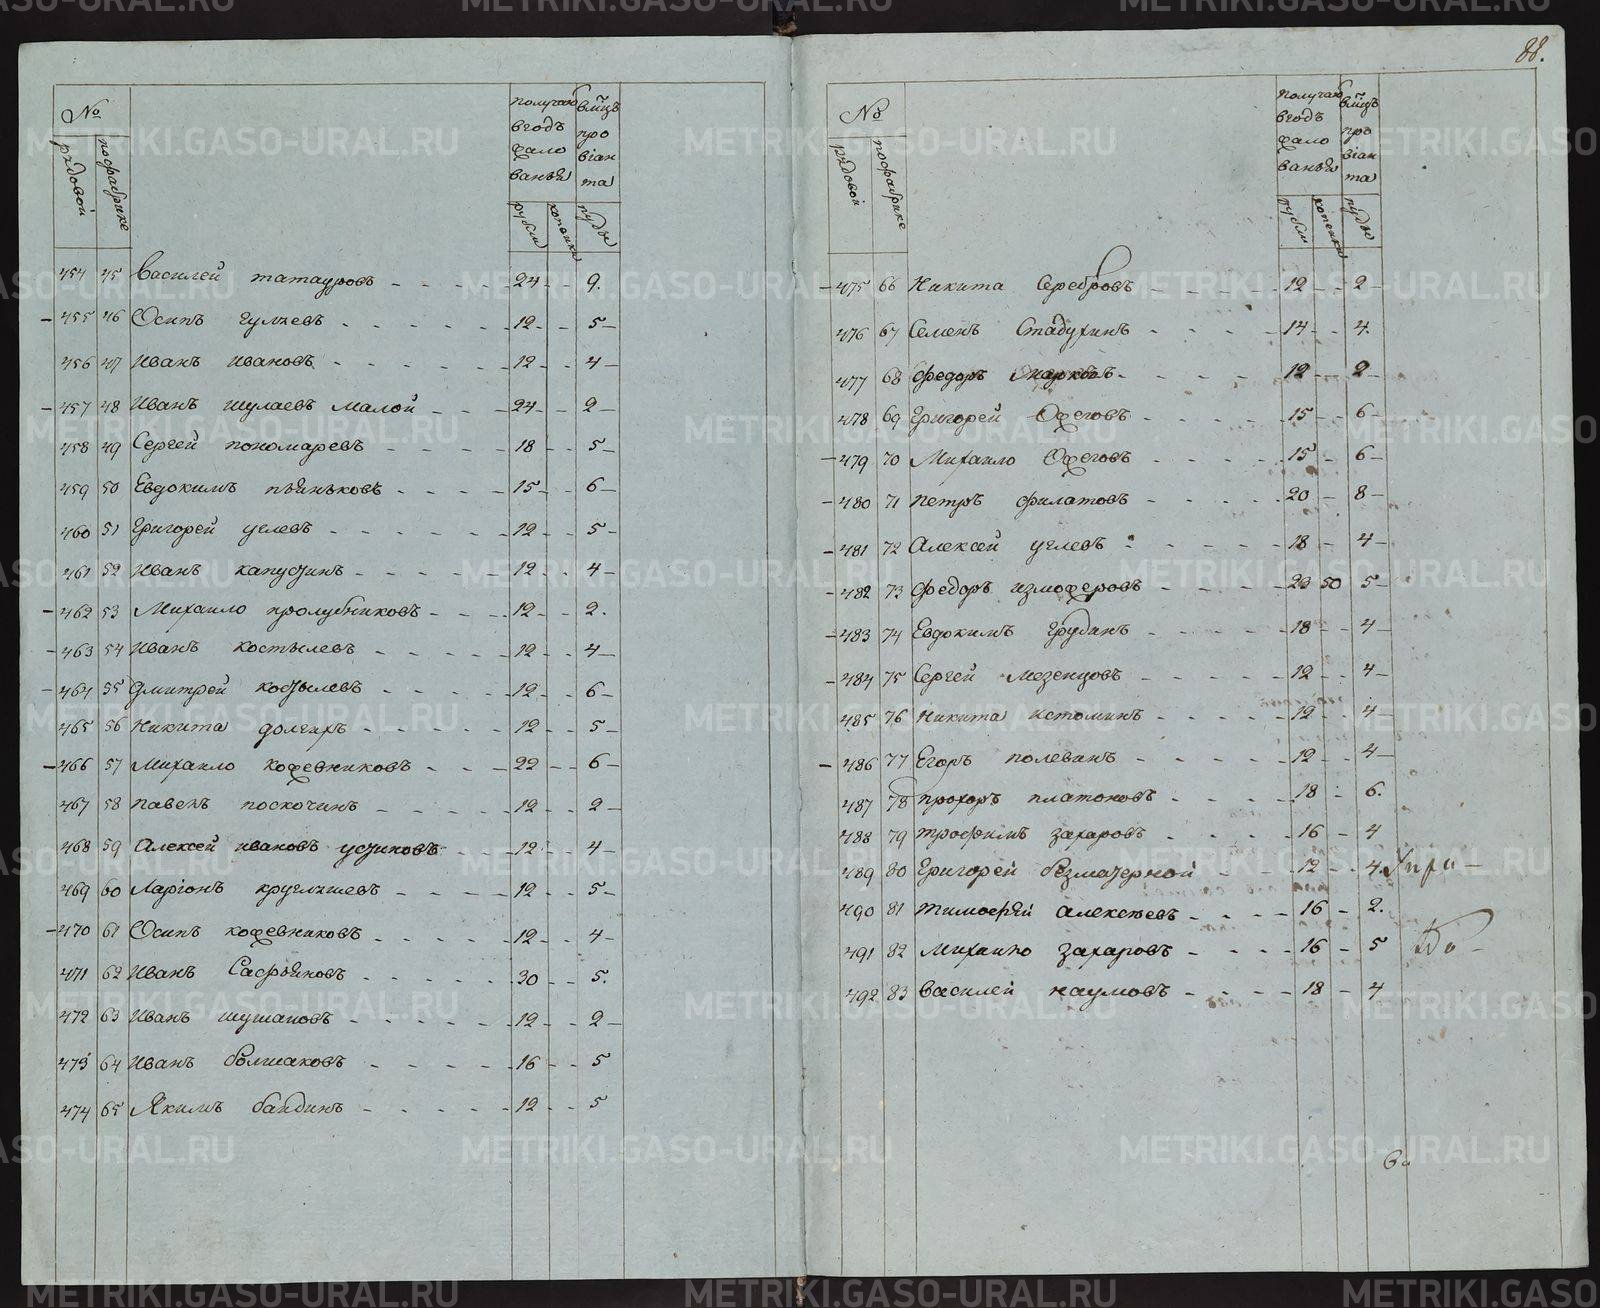 88.
№
рядовой
пофабрике
получаю
вгодъ
жало
ванья
рубли
копейки
вм͠цъ
про
віан
та
пуды
454 45 Василей татауровъ 24 9.
455 46 Осипъ гуляевъ 12 5
456 47 Иванъ ивановъ 12 4
457 48 Иванъ шулаевъ малой 24 2
458 49 Сергей пономаревъ 18 5
459 50 Евдокимъ пьянковъ 15 6
460 51 Григорей углевъ 12 5
461 52 Иванъ капустинъ 12 4
462 53 Михаило пролубниковъ 12 2.
463 54 Иванъ костылевъ 12 4
464 55 Дмитрей костылевъ 12 6
465 56 Никита долгихъ 12 5
466 57 Михаило кожевниковъ 22 6
467 58 павелъ поскочинъ 12 2
468 59 Алексей ивановъ устиновъ 12 4
469 60 Ларіонъ круглышевъ 12 5
470 61 Осипъ кожевниковъ 12 4
471 62 Иванъ Сафьяновъ 30 5.
472 63 Иванъ шушаковъ 12 2
473 64 Иванъ болшаковъ 16 5
474 65 Якимъ байдинъ 12 5
№
рядовой
пофабрике
получаю
вгодъ
жало
ванья
рубли
копейки
вм͠цъ
про
віан
та
пуды
475 66 Никита Серебровъ 12 2
476 67 Семенъ Стадухинъ 14 4.
477 68 Федоръ Марковъ 12 2
478 69 Григорей Ожеговъ 15 6
479 70 Михаило Ожеговъ 15 6
480 71 петръ филатовъ 20 8
481 72 Алексей углевъ 18 4
482 73 Федоръ измоферовъ 23 50 5
483 74 Евдокимъ Грудинъ 18 4
484 75 Сергей мезенцовъ 12 4
485 76 Никита истоминъ 12 4
486 77 Егоръ полевинъ 12 4
487 78 прохоръ платоновъ 18 6.
488 79 трофимъ захаровъ 16 4
489 80 Григорей безматерной 12 4.
490 81 тимофей алексеевъ 16 2.
491 82 Михаило захаровъ 16 5
492 83 василей наумовъ 18 4
METRIKI.GASO-URAL.RU